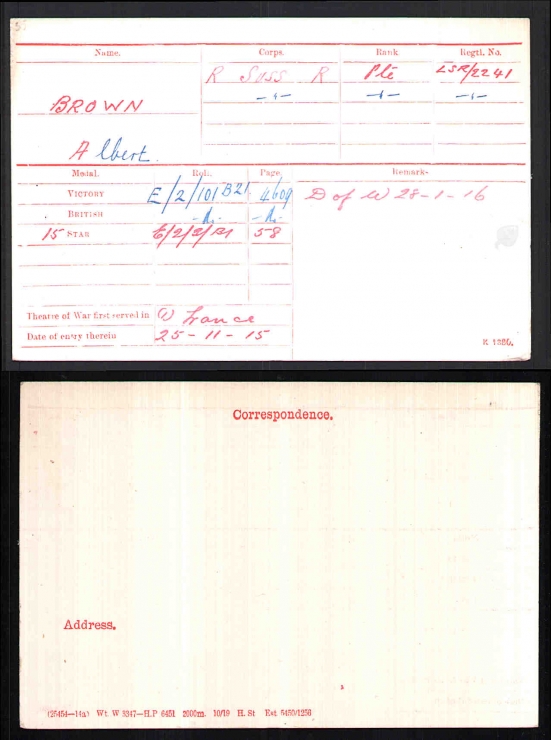 Name. Corps. Rank Regtl. No.
BROWN R Suss R Pte LSR/2241
Albert.
Medal. Roll. Page Remarks
VICTORY E/2/101 B21 4609 D of W 28-1-16
BRITISH -do- -do-
15 STAR E/2/2/B1 58
Theatre of War first served in (1) France
Date of entry therein 25-11-15
K 1380.
Correspondence.
Address.
(25454—14a) Wt. W 3347—H.P 6451 2000m. 10/19 H. St Est 5450/1256